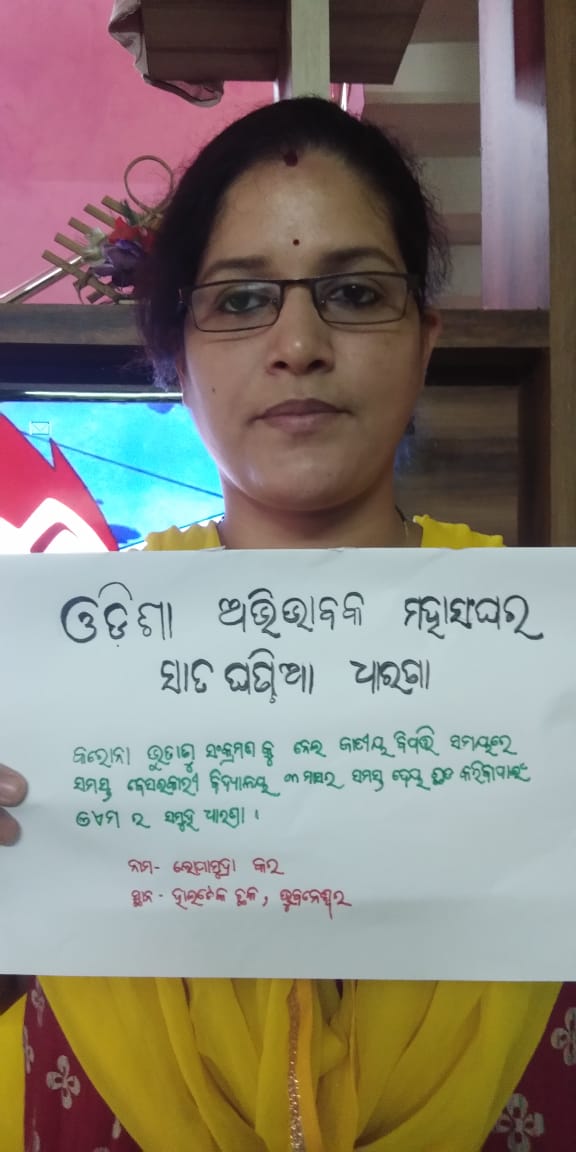 ଓଡ଼ିଶା ଅଭିଭାବକ ମହାସଂଘର
ସାତ ଘଣ୍ଟିଆ ଧାରଣା
କରୋନା ଭୂତାଣୁ ସଂକ୍ରମଣ କୁ ନେଇ ଜାତୀୟ ବିପତ୍ତି ସମୟରେ
ସମସ୍ତ ବେସରକାରୀ ବିଦ୍ୟାଳୟ ୩ ମାସର ସମସ୍ତ ଦେୟ ଛାଡ କରିବାପାଇଁ
ଓଏମ ର ସମୂହ ଧାରଣା ।
ନାମ- ଲୋପାମୁଦ୍ରା କର
ସ୍ଥାନ - ହାଇଟେକ ଛକ, ଭୁବନେଶ୍ୱର